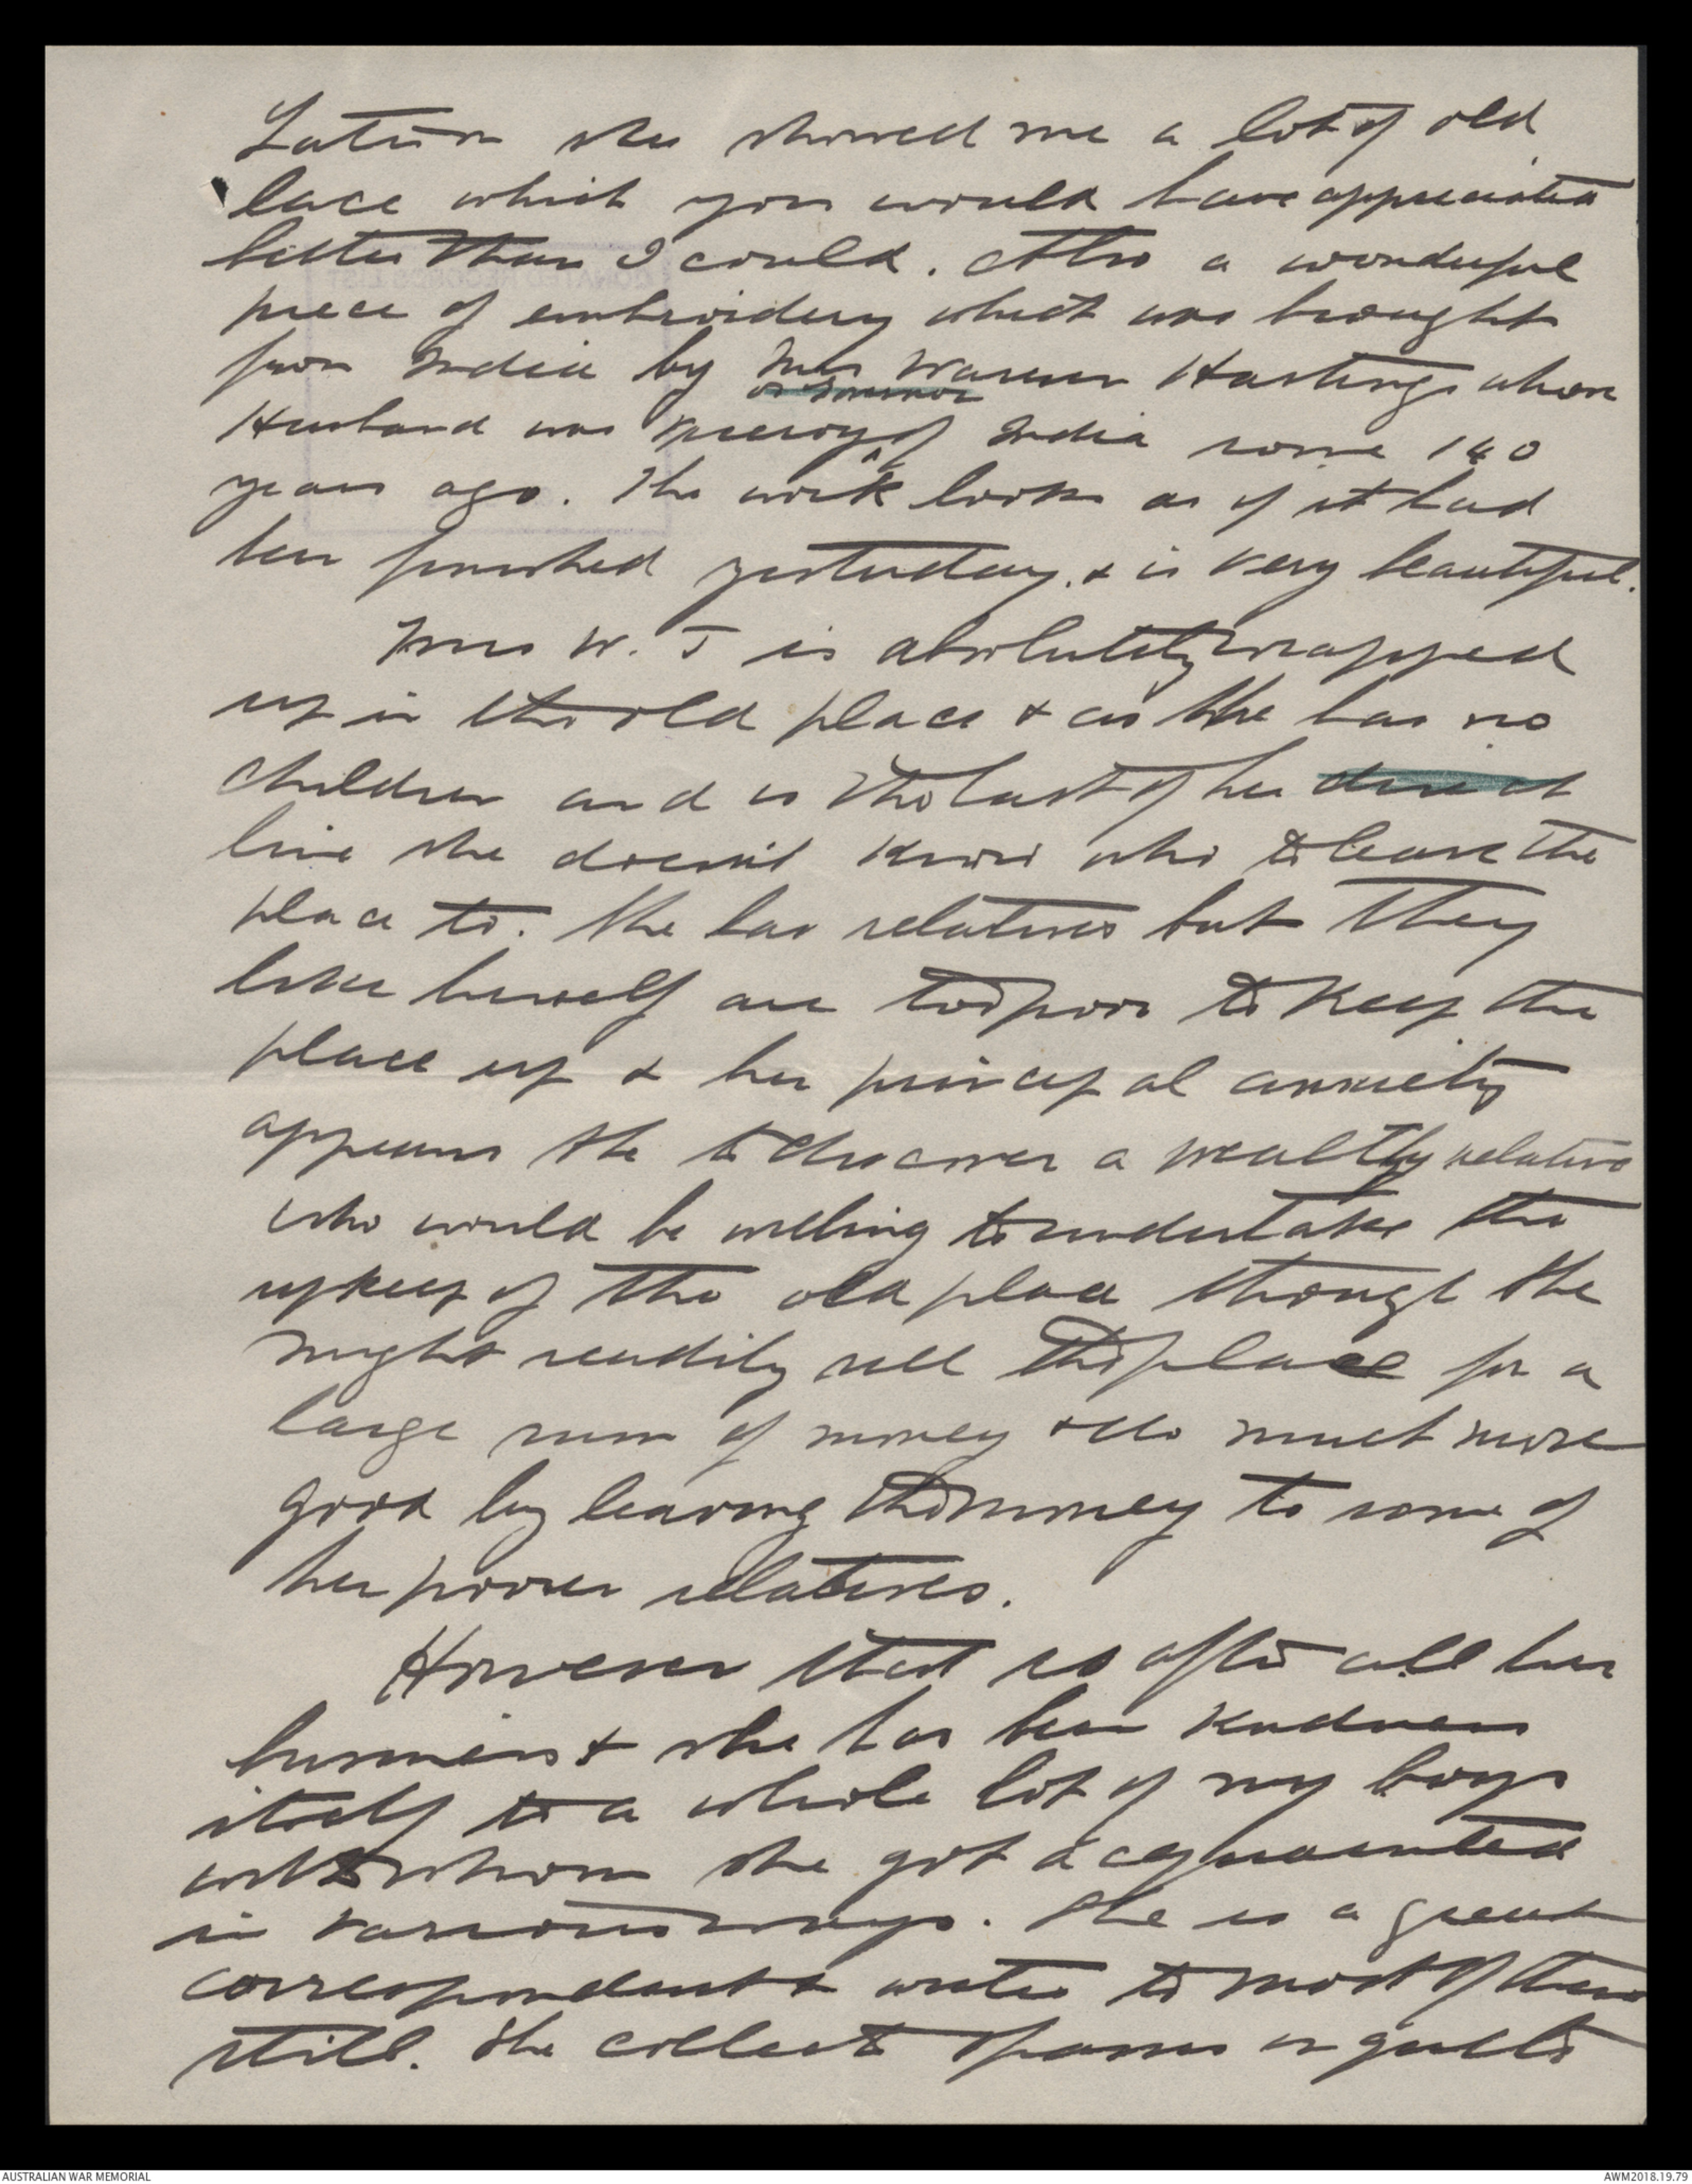 Later on she showed me a lot of old
lace which you would have appreciated
better than I could. Also a wonderful
piece of embroidery which was brought
from India by Mrs Warren Hastings whose
or Governor
Husband was Viceroy of India some 140
years ago. The work looks as if it had
been finished yesterday & is very beautiful.
Mrs W. T is absolutely wrapped
up in the old place & as she has no
children and is the last of her direct
line she doesn't know who to leave the
place to. She has relatives but they
like herself are too poor to keep the
place up & her principal anxiety
appears the to discover a wealthy relative
who would be willing to undertake the
upkeep of the old place though she
might readily sell the place for a
large sum of money & do much more
good by leaving the money to some of
her poorer relatives.
However that is after all her
business & she has been kindness
itself to a whole lot of my boys
with whom she got acquainted
in various ways. She is a great
correspondent & writes to most of them
still. She collects spoons
AUSTRALIAN WAR MEMORIAL
AWM2018.19.79